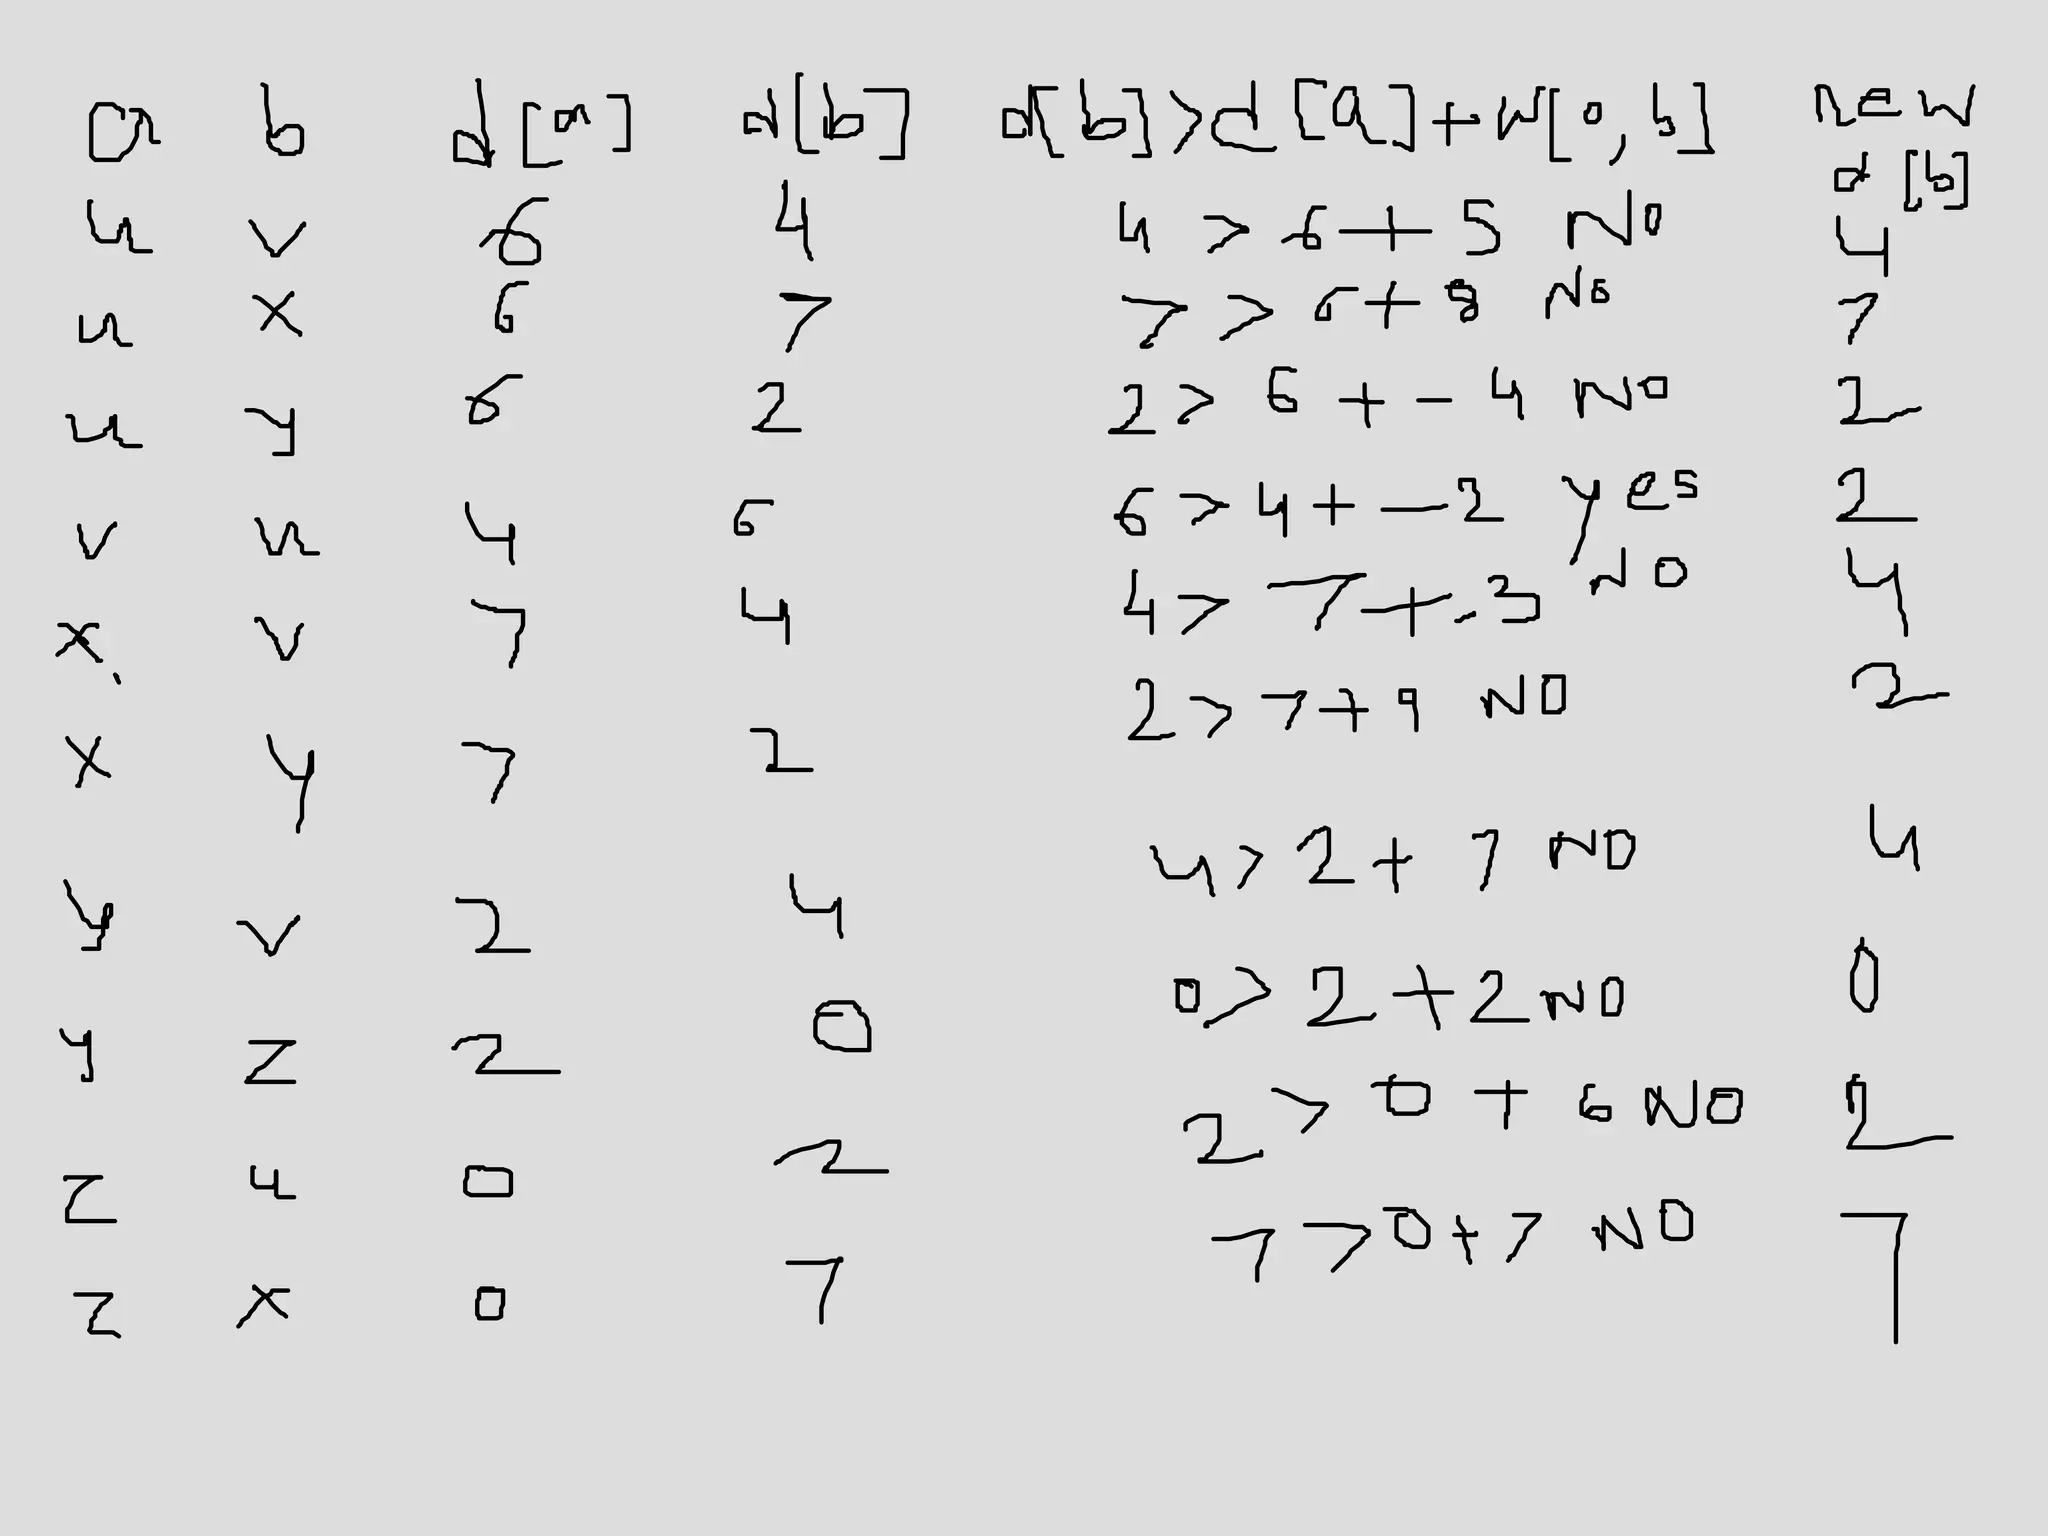 a b d[a] d[b] d[b]>d[a]+w[a,b] new d[b]
u v 6 4 4 > 6 + 5 No 4
u x 6 7 7 > 6 + 8 No 7
u y 6 2 2 > 6 + - 4 No 2
v u 4 6 6 > 4 + - 2 yes 2
x v 7 4 4 > 7 + -3 NO 4
x y 7 2 2 > 7 + 9 NO 2
y v 2 4 4 > 2 + 7 NO 4
y z 2 0 0 > 2 + 2 NO 0
z u 0 2 2 > 0 + 6 NO 2
z x 0 7 7 > 0 + 7 NO 7